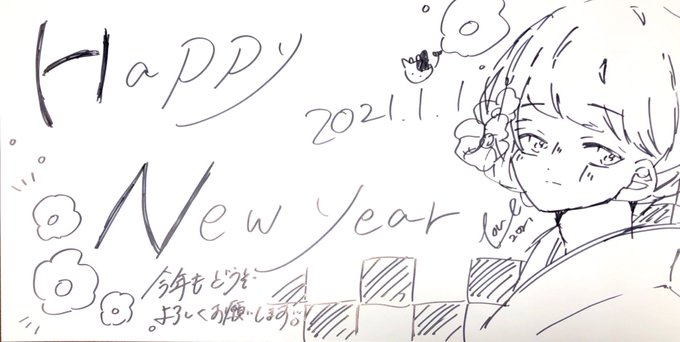 Happy
2021.1.1
New year
今年もどうぞ
よろしくお願いします。
2021